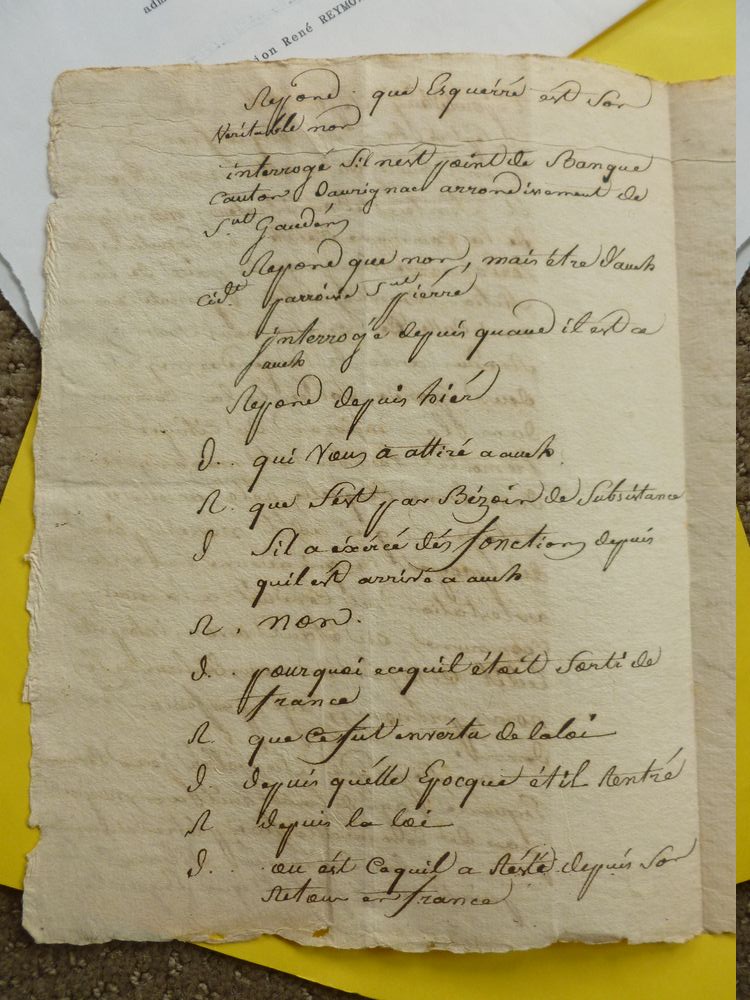 adm
ion René REYMO
Repond que Esquerré est Son
Veritable nom
interrogé Sil nést point de
Canton Daurignac arrondissement de
S.nt Gaudéns
Repond que non, mais être d'auch
parroisse S.nt piérre
jnterrogé depuis quand il est a
auch
Repond depuis hiér
D.. qui Vous a attiré a auch.
R. que Sést par Bézoin de Subsistance
D Sil a éxércé dés fonctions depuis
quil ést arrivé a auch
R. non.
D. pourquoi ecequil étoit Sorti de
france
R. que Ce fut envértu de la loi
D. depuis quélle Epocque étil Rentré
R depuis la loi
D.. ou ést Cequil a Résté depuis Son
Retour en france